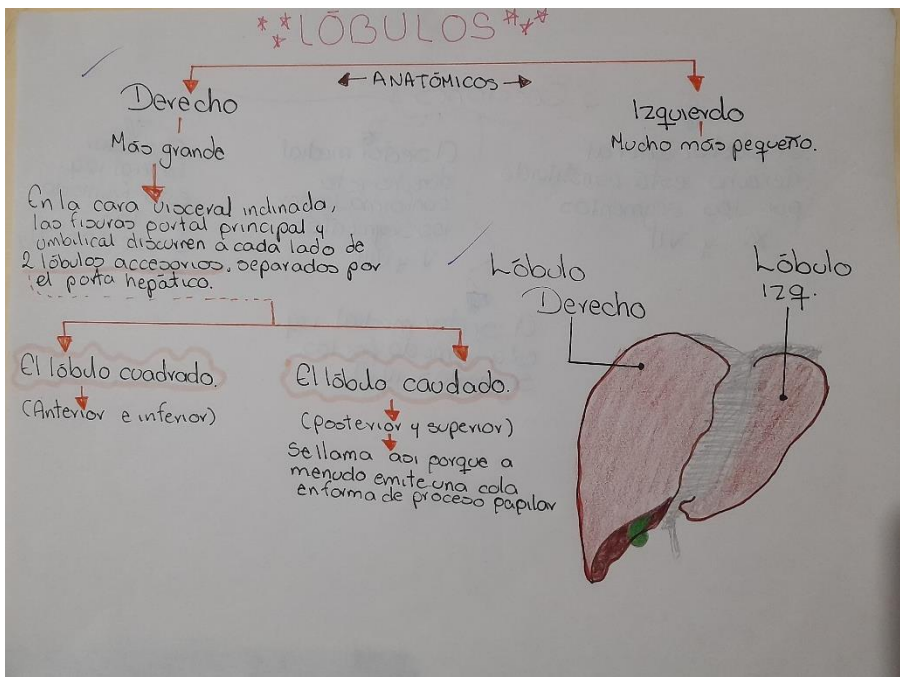 LÓBULOS
ANATÓMICOS
Derecho
Más grande
En la cara visceral inclinada,
las fisuras portal principal y
umbilical discurren a cada lado de
2 lóbulos accesorios, separados por
el porta hepático.
El lóbulo cuadrado.
(Anterior e inferior)
El lóbulo caudado.
(posterior y superior)
Se llama asi porque a
menudo emite una cola
en forma de proceso papilar
Izquierdo
Mucho más pequeño.
Lóbulo
Derecho
Lóbulo
izq.